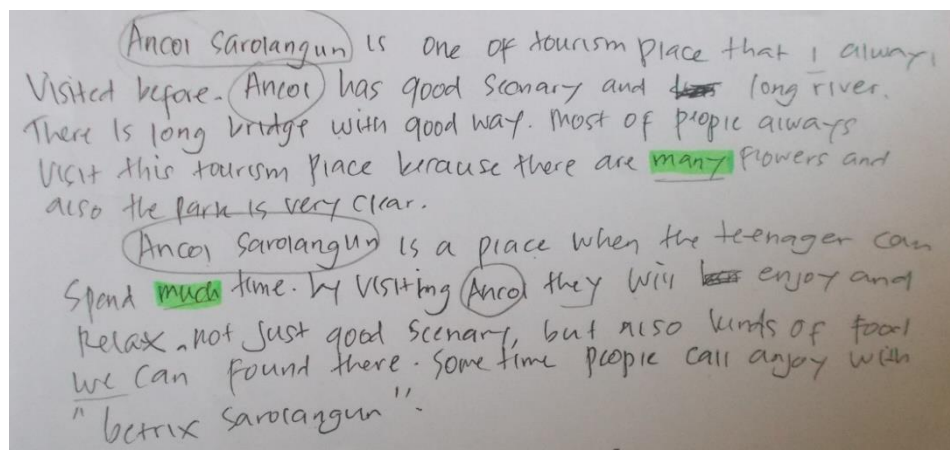 Ancol Sarolangun is one of tourism place that i always
Visited before. Ancol has good Scenary and long river.
There Is long bridge with good way. Most of people always
Visit this tourism place because there are many flowers and
also the park is very clear.
Ancol Sarolangun is a place when the teenager can
Spend much time. by visiting Ancol they will enjoy and
Relax, not just good scenary, but also kinds of food
we can found there. Some time people call anjoy with
"betrix Sarolangun".